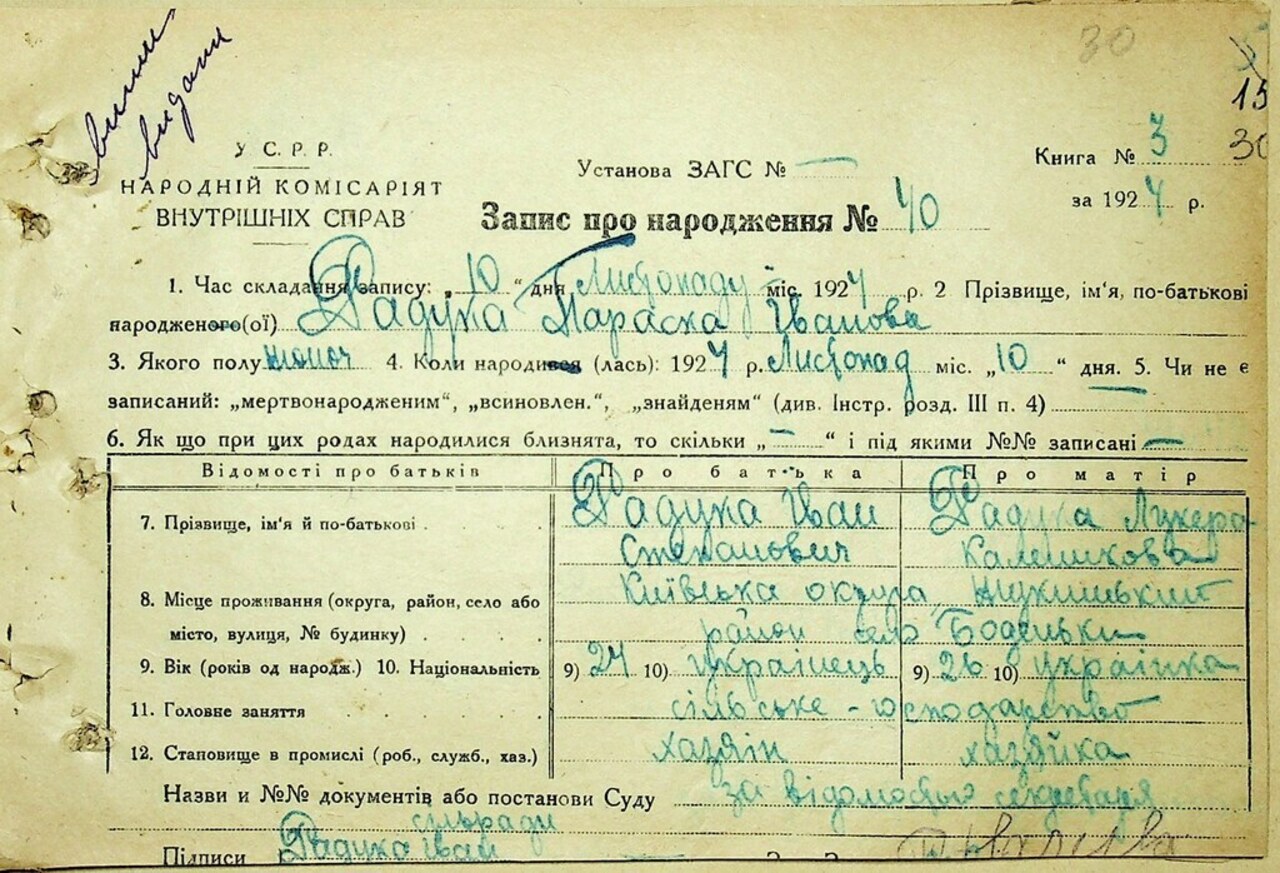 виписи
видани
30
15
30
У.С.Р.Р.
НАРОДНІЙ КОМІСАРІЯТ
ВНУТРІШНІХ СПРАВ
Установа ЗАГС № —
Книга № 3
за 1927 р.
Запис про народження № 40
1. Час складання запису: „10“ дня Листопаду міс. 1927 р. 2 Прізвище, ім'я, по-батькові
народженого(ої) Радука Параска Іванова
3. Якого полу жіноч 4. Коли народився (лась): 1927 р. Листопад міс. „10“ дня. 5. Чи не є
записаний: „мертвонародженим“, „всиновлен.“, „знайденям“ (див. Інстр. розд. III п. 4) —
6. Як що при цих родах народилися близнята, то скільки „—“ і під якими №№ записані —
Відомості про батьків Про батька Про матір
7. Прізвище, ім'я й по-батькові Радука Іван Радука Лукера
Степанович
8. Місце проживання (округа, район, село або Київська округа,
місто, вулиця, № будинку) район село Боденьки
9. Вік (років од народж.) 10. Національність 9) 27 10) українець 9) 26 10) українка
11. Головне заняття сільське - господарство
12. Становище в промислі (роб., служб., хаз.) хазяін хазяйка
Назви и №№ документів або постанови Суду за відомостью секретаря
сільради
Підписи Радука Іван